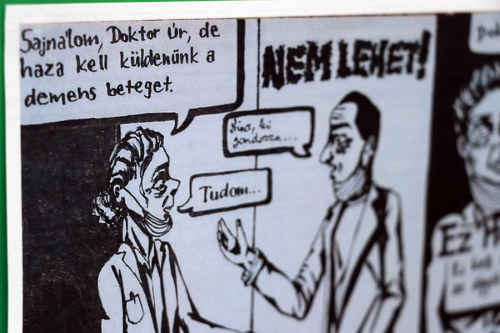 Sajnálom, Doktor Úr, de
haza kell küldenünk a
demens beteget.
NEM LEHET!
Nincs, ki
gondozza...
Tudom...
Ez